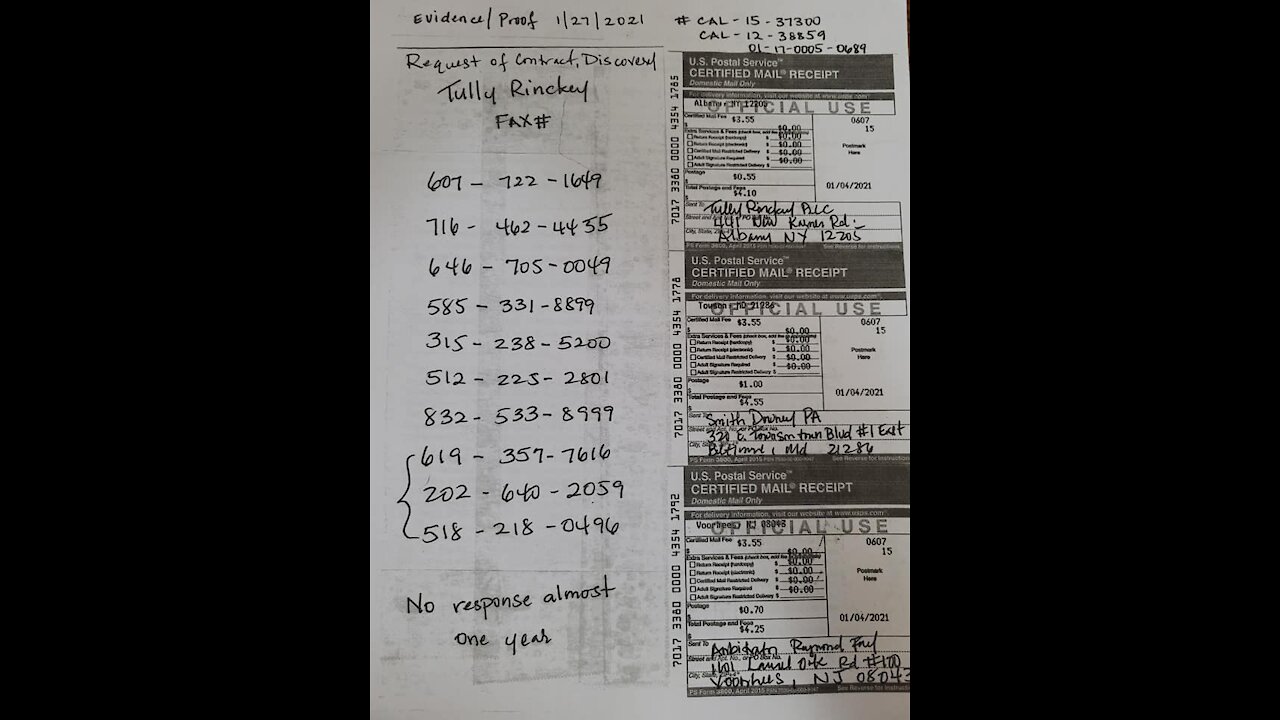 Evidence/Proof 1/27/2021
# CAL-15-37300
CAL-12-38859
01-17-0005-0689
Request of Contract, Discovery
Tully Rinckey
FAX#
607-722-1649
716-462-4435
646-705-0049
585-331-8899
315-238-5200
512-225-2801
832-533-8999
619-357-7616
202-640-2059
518-218-0496
No response almost
one year
7017 3380 0000 4354 1785
U.S. Postal Service™
CERTIFIED MAIL® RECEIPT
Domestic Mail Only
For delivery information, visit our website at www.usps.com®.
Albany, NY 12205
OFFICIAL USE
Certified Mail Fee $3.55
$
0607
15
Extra Services & Fees (check box, add fee as appropriate) $0.00
Return Receipt (hardcopy) $ $0.00
Return Receipt (electronic) $ $0.00
Certified Mail Restricted Delivery $ $0.00
Adult Signature Required $ $0.00
Adult Signature Restricted Delivery $
Postmark
Here
Postage
$0.55
$
Total Postage and Fees
$4.10
01/04/2021
Sent To Tully Rinckey PLLC
Street and Apt. No., or PO Box No. 441 New Karner Rd.
City, State, ZIP+4® Albany NY 12205
PS Form 3800, April 2015 PSN 7530-02-000-9047 See Reverse for Instructions
7017 3380 0000 4354 1778
U.S. Postal Service™
CERTIFIED MAIL® RECEIPT
Domestic Mail Only
For delivery information, visit our website at www.usps.com®.
Towson, MD 21286
OFFICIAL USE
Certified Mail Fee $3.55
$
0607
15
Extra Services & Fees (check box, add fee as appropriate) $0.00
Return Receipt (hardcopy) $ $0.00
Return Receipt (electronic) $ $0.00
Certified Mail Restricted Delivery $ $0.00
Adult Signature Required $ $0.00
Adult Signature Restricted Delivery $
Postmark
Here
Postage
$1.00
$
Total Postage and Fees
$4.55
01/04/2021
Sent To Smith Downey PA
Street and Apt. No., or PO Box No. 320 E. Towsontown Blvd #1 East
City, State, ZIP+4® Baltimore, Md 21286
PS Form 3800, April 2015 PSN 7530-02-000-9047 See Reverse for Instructions
7017 3380 0000 4354 1792
U.S. Postal Service™
CERTIFIED MAIL® RECEIPT
Domestic Mail Only
For delivery information, visit our website at www.usps.com®.
Voorhees, NJ 08043
OFFICIAL USE
Certified Mail Fee $3.55
$
0607
15
Extra Services & Fees (check box, add fee as appropriate) $0.00
Return Receipt (hardcopy) $ $0.00
Return Receipt (electronic) $ $0.00
Certified Mail Restricted Delivery $ $0.00
Adult Signature Required $ $0.00
Adult Signature Restricted Delivery $
Postmark
Here
Postage
$0.70
$
Total Postage and Fees
$4.25
01/04/2021
Sent To Arbitrator Raymond
Street and Apt. No., or PO Box No. 1101 Laurel Oak Rd #100
City, State, ZIP+4® Voorhees, NJ 08043
PS Form 3800, April 2015 PSN 7530-02-000-9047 See Reverse for Instructions